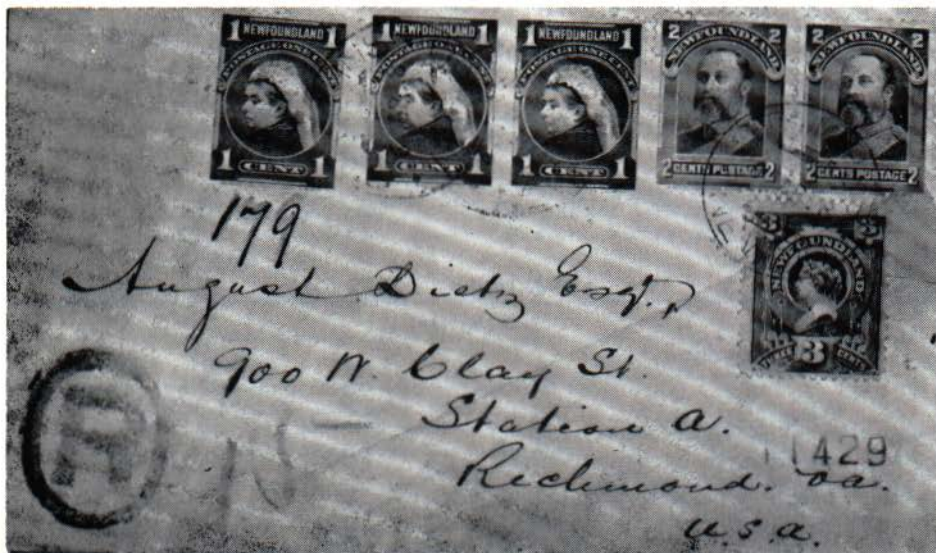 1 NEWFOUNDLAND 1
POSTAGE ONE CENT
1 CENT 1
1 NEWFOUNDLAND 1
POSTAGE ONE CENT
1 CENT 1
1 NEWFOUNDLAND 1
POSTAGE ONE CENT
1 CENT 1
2 2
NEWFOUNDLAND
2 CENTS POSTAGE 2
2 2
NEWFOUNDLAND
2 CENTS POSTAGE 2
3 3
NEWFOUNDLAND
THREE 3 CENTS
179
August Dietz Esq.,
900 W. Clay St.
Station A.
Richmond. Va.
U.S.A.
R
11429